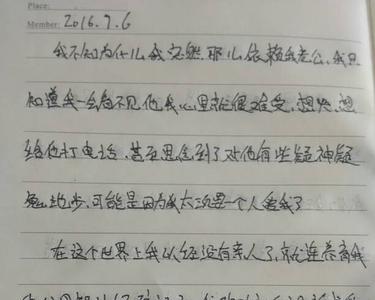 Place:
Member: 2016.7.6
我不知为什么我突然那么依赖我老公,我只
知道我一会看不见他我心里就很难受,想哭,想
给他打电话,甚至思念到了对他有些疑神疑
鬼地步,可能是因为我太需要一个人爱我了
在这个世界上我以经没有亲人了,就连养育我